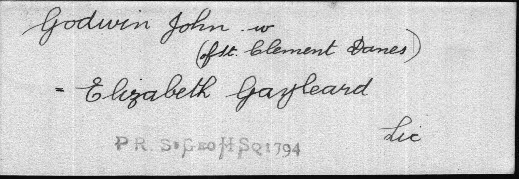 Godwin John w
(of St. Clement Danes)
= Elizabeth Gayleard
Lic
PR St GEO H SQ 1794